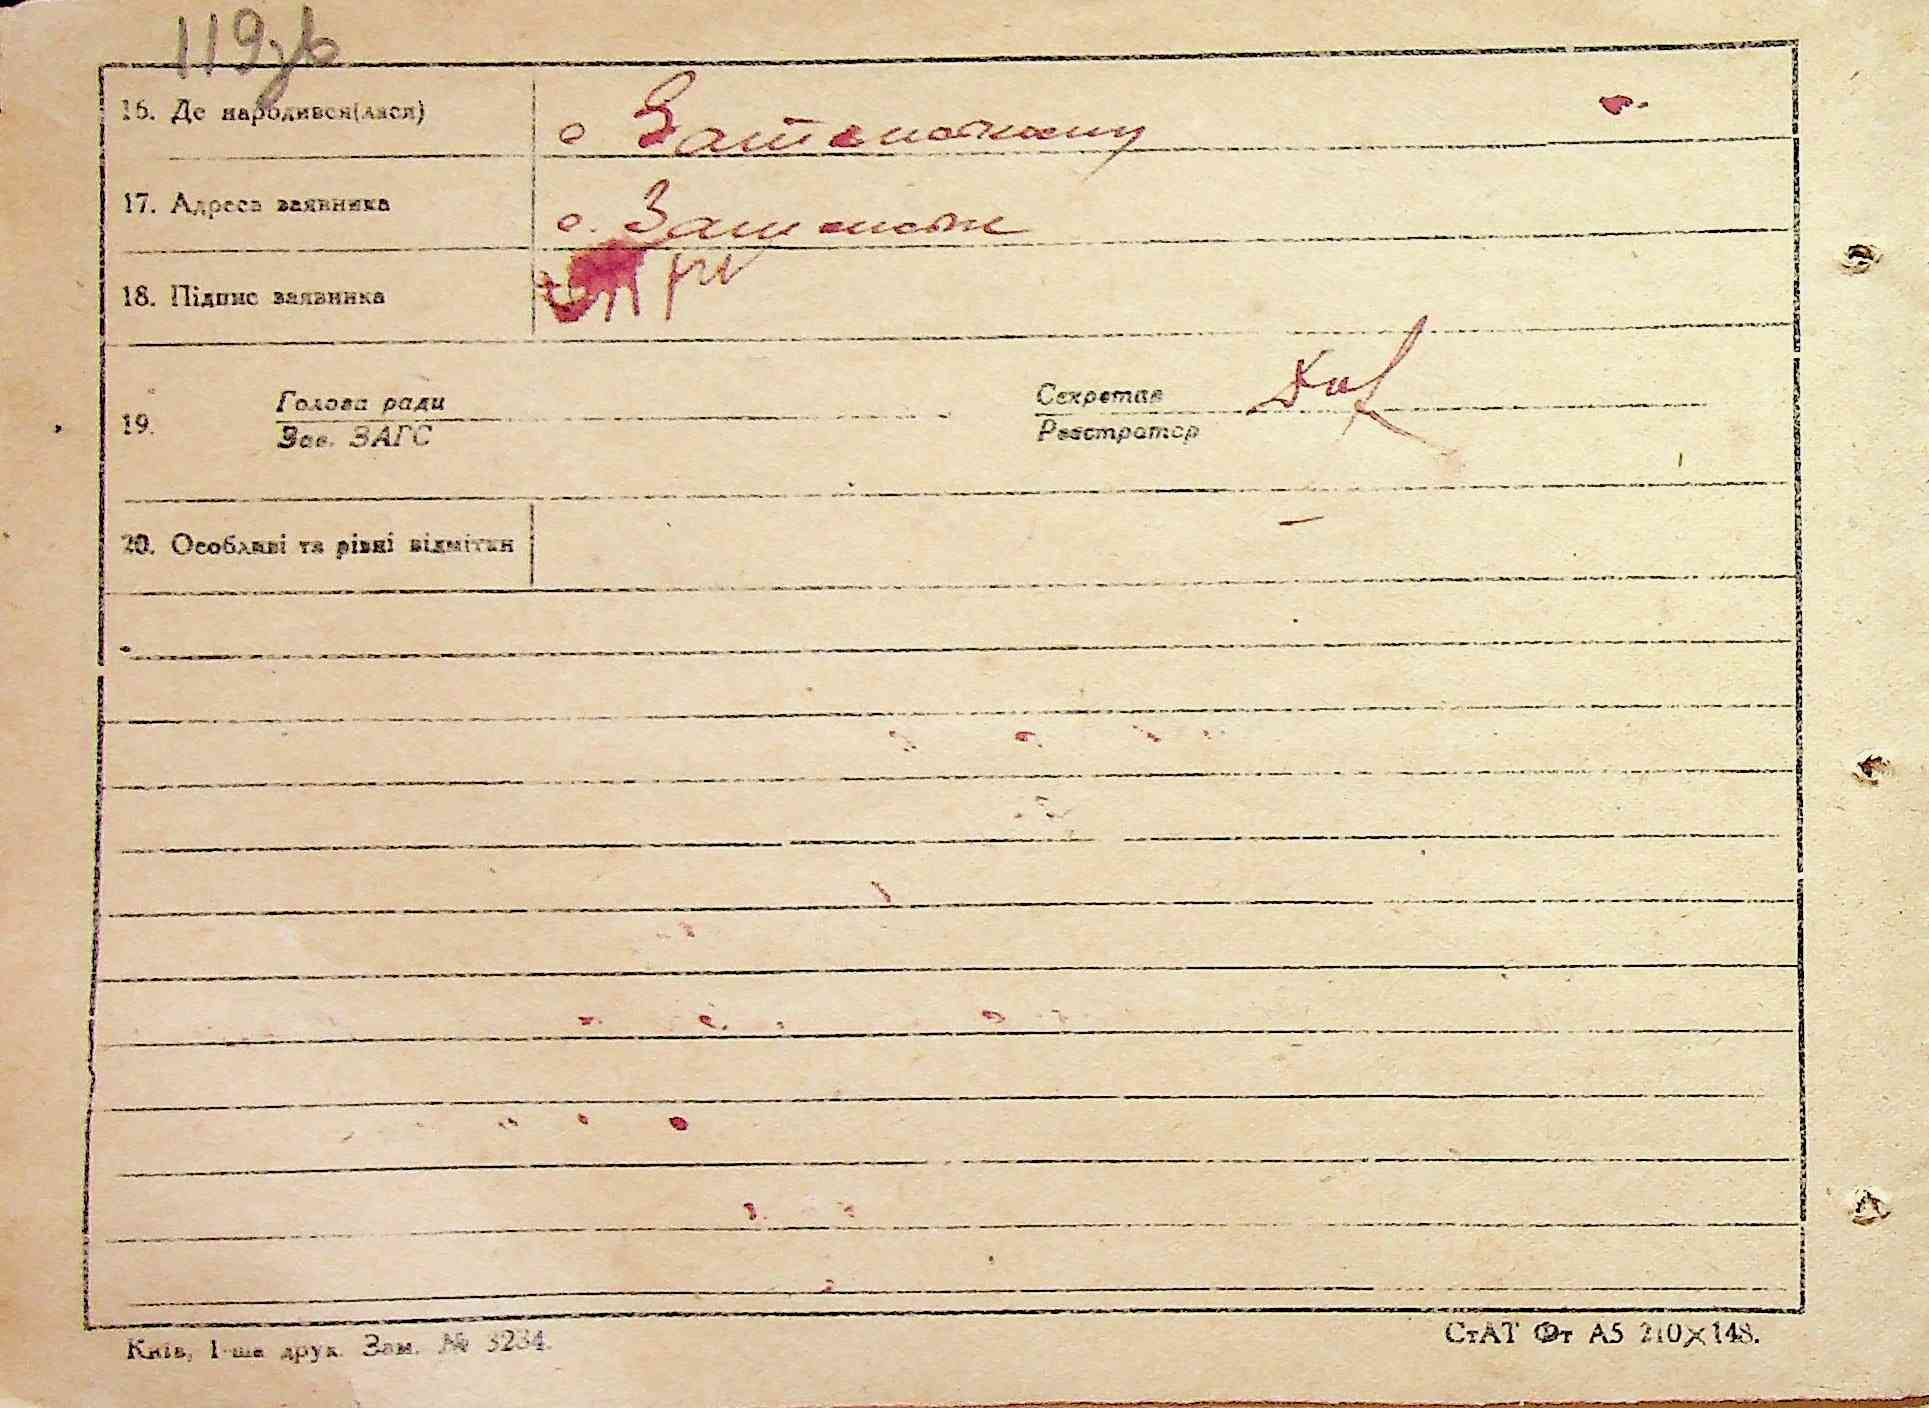 119зв
16. Де народився(лася) с
17. Адреса заявника с.
18. Підпис заявника
19. Голова ради Секретар
Зав. ЗАГС Реєстратор
20. Особливі та різні відмітки
Київ, 1-ша друк. Зам. № 3234.
СтАТ Фт А5 210×148.